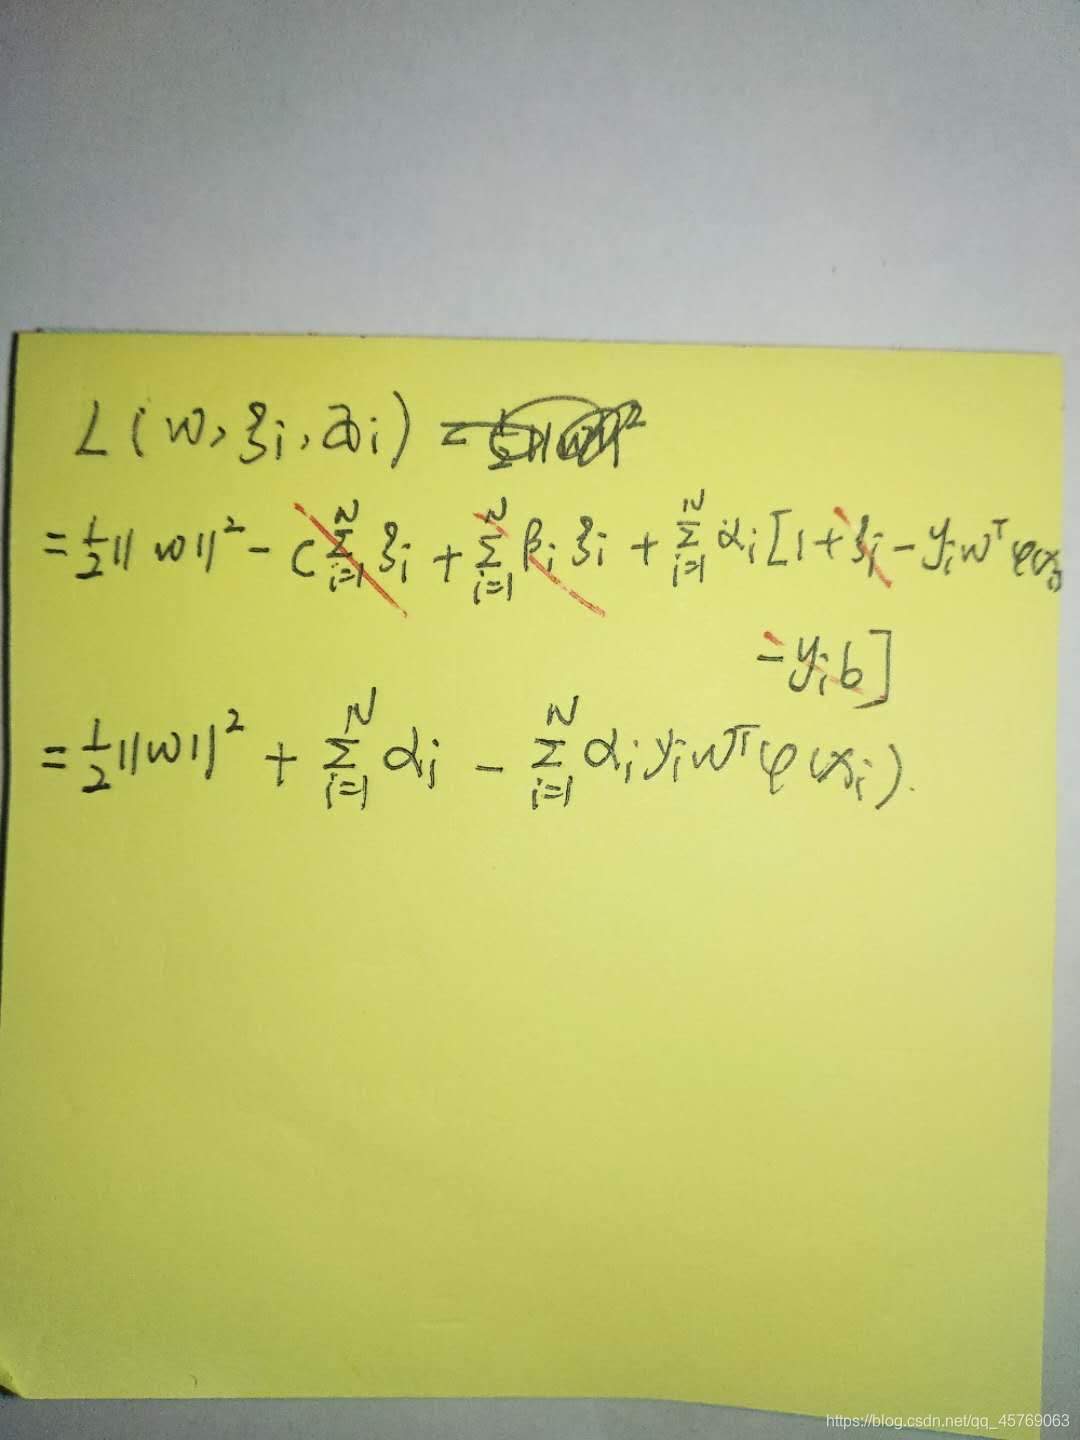 L(w, ξi, αi) = 
= 1/2 ||w||² - C Σ_{i=1}^{N} ξi + Σ_{i=1}^{N} βi ξi + Σ_{i=1}^{N} αi [1 + ξi - yi wᵀ φ(xi)
- yi b]
= 1/2 ||w||² + Σ_{i=1}^{N} αi - Σ_{i=1}^{N} αi yi wᵀ φ(xi).
https://blog.csdn.net/qq_45769063